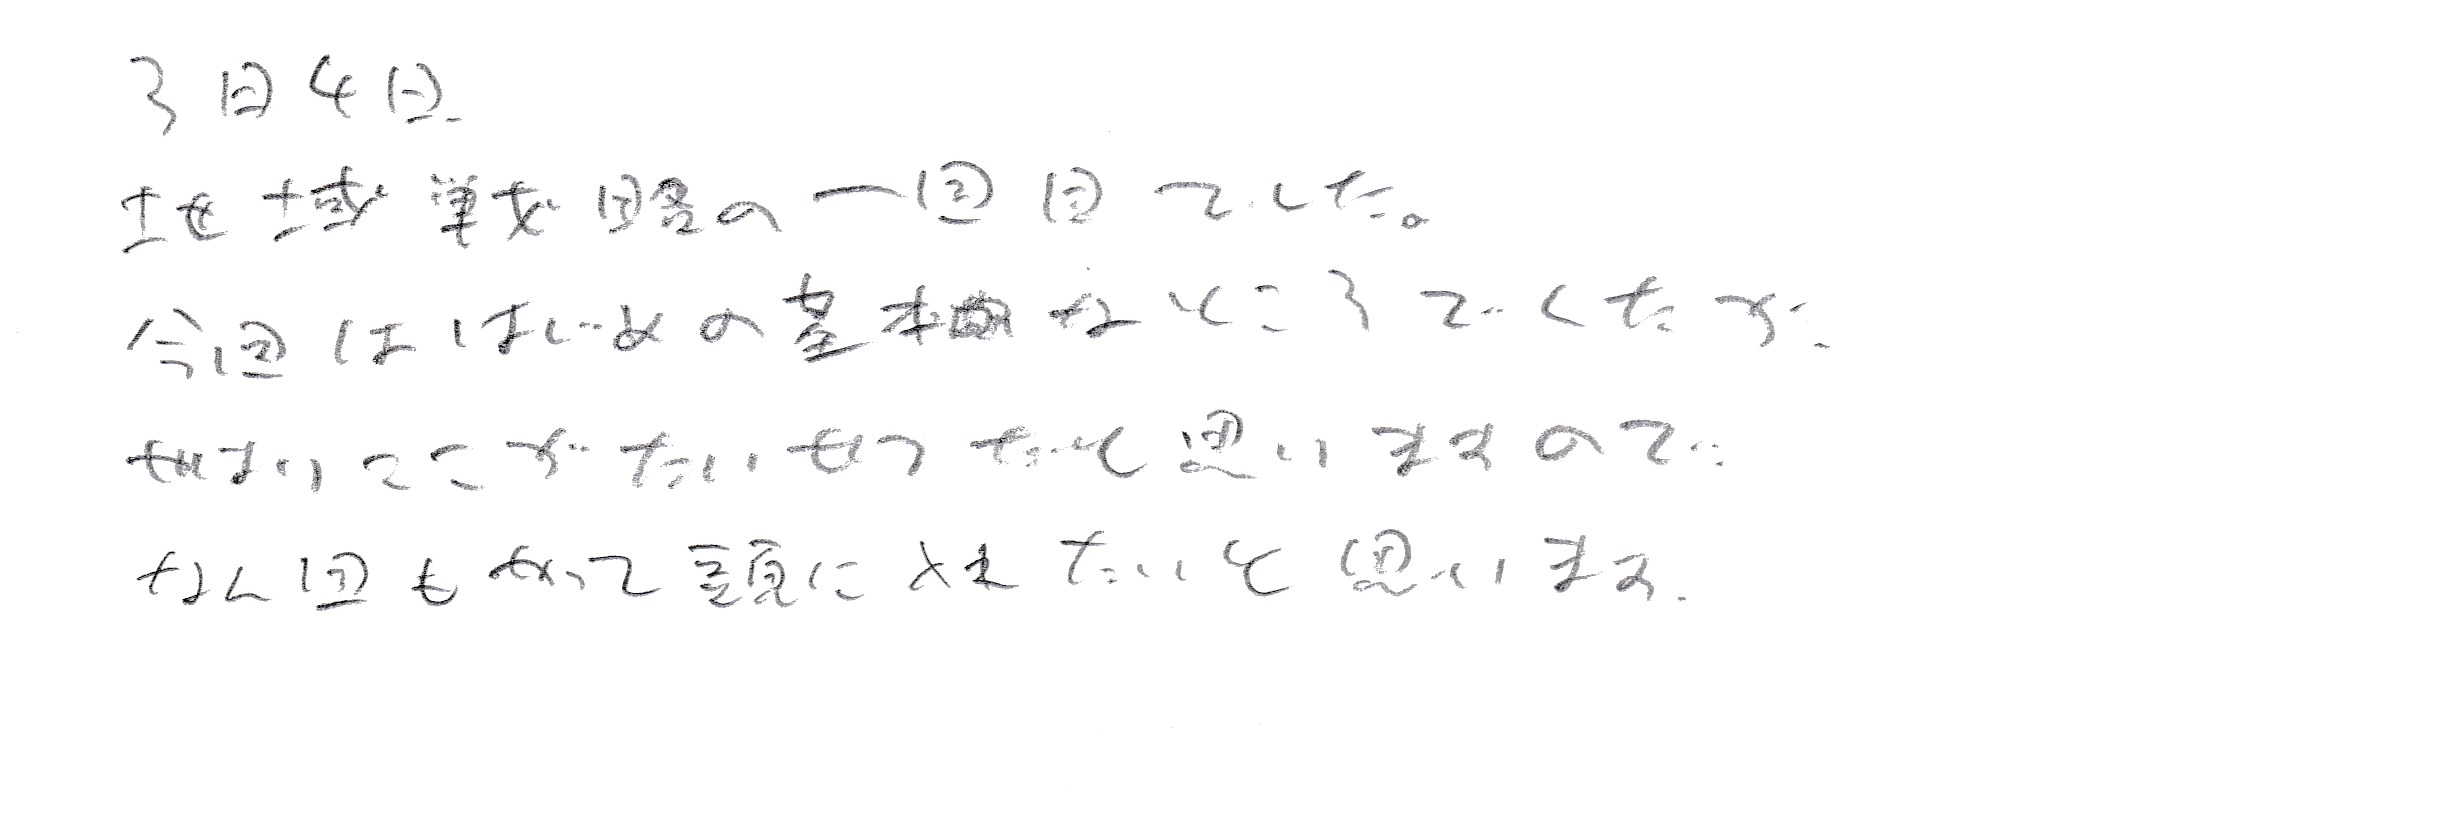 3日4日.
地域戦略の一回目でした。
今回ははじめの基本的なところでしたが、
やはりここがたいせつだと思いますので、
なん回もやって頭に入れたいと思います.